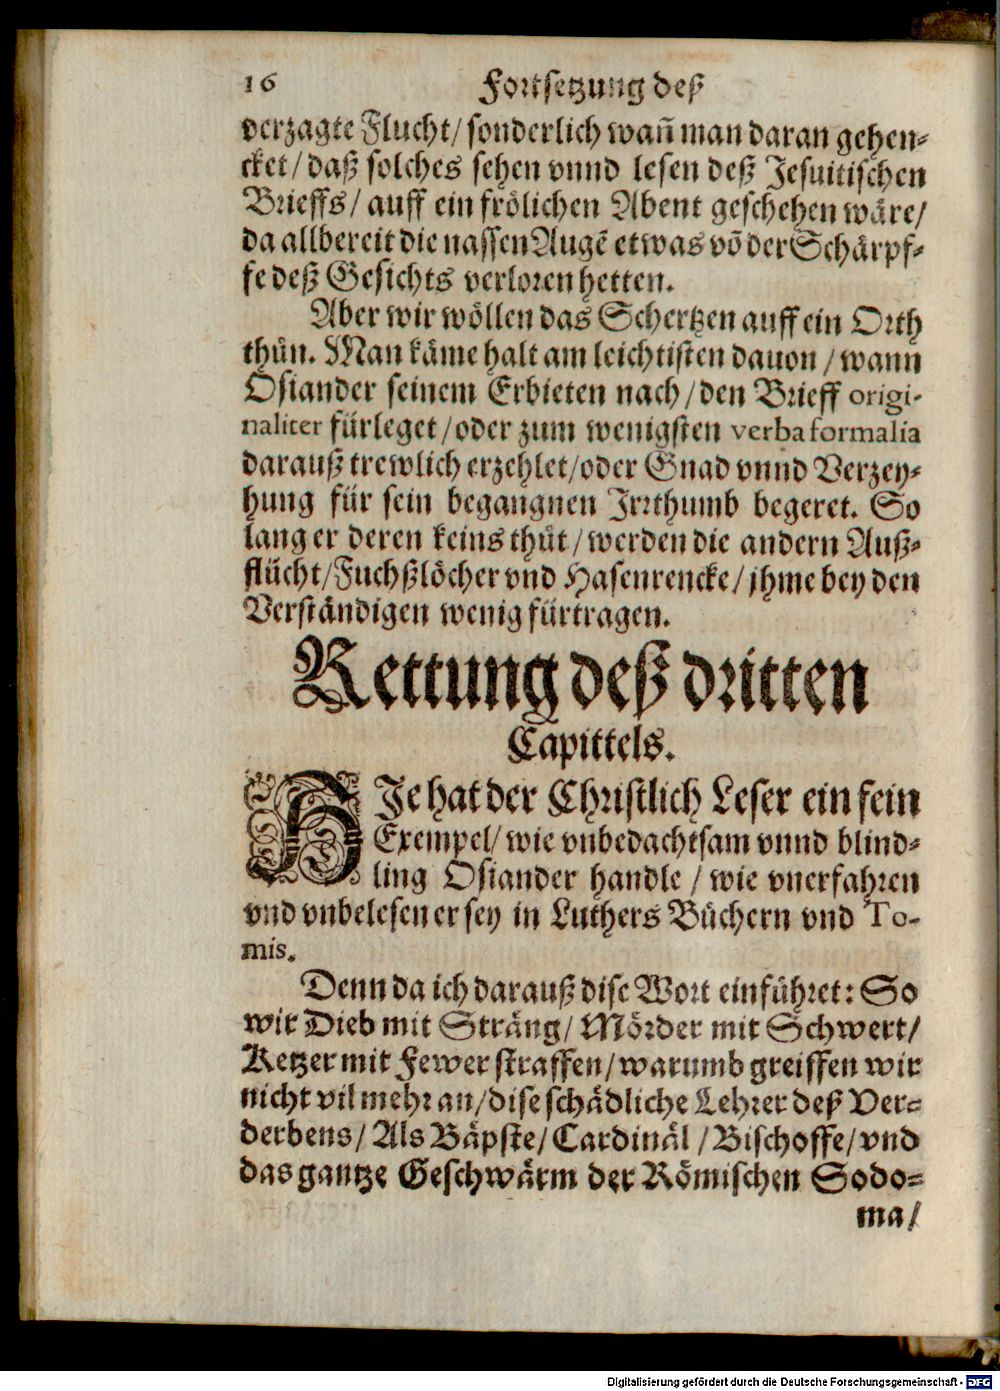 16 Fortsetzung deß
verzagte Flucht/ sonderlich wañ man daran gehen-
cket/ daß solches sehen vnnd lesen deß Jesuitischen
Brieffs/ auff ein frölichen Abent geschehen wäre/
da allbereit die nassen Augẽ etwas võ der Schärpf-
fe deß Gesichts verloren hetten.
Aber wir wöllen das Schertzen auff ein Orth
thün. Man käme halt am leichtisten dauon / wann
Osiander seinem Erbieten nach/ den Brieff origi-
naliter fürleget/ oder zum wenigsten verba formalia
darauß trewlich erzehlet/ oder Gnad vnnd Verzey-
hung für sein begangnen Jrrthumb begeret. So
lang er deren keins thüt/ werden die andern Auß-
flücht/ Fuchßlöcher vnd Hasenrencke/ jhme bey den
Verständigen wenig fürtragen.
Rettung deß dritten
Capittels.
HJe hat der Christlich Leser ein fein
Exempel/ wie vnbedachtsam vnnd blind-
ling Osiander handle / wie vnerfahren
vnd vnbelesen er sey in Luthers Büchern vnd To-
mis.
Denn da ich darauß dise Wort einführet: So
wir Dieb mit Sträng/ Mörder mit Schwert/
Ketzer mit Fewer straffen/ warumb greiffen wir
nicht vil mehr an/ dise schädliche Lehrer deß Ver-
derbens/ Als Bäpste/ Cardinäl / Bischoffe/ vnd
das gantze Geschwärm der Römischen Sodo-
ma/
Digitalisierung gefördert durch die Deutsche Forschungsgemeinschaft - DFG